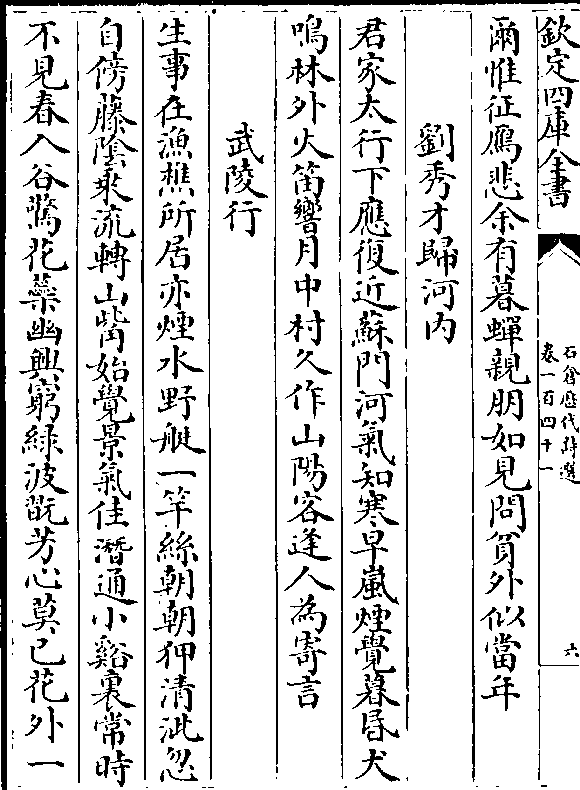 欽定四庫全書
石倉歷代詩選
卷一百四十一
六
爾惟征鴈悲余有暮蟬親朋如見問負外似當年
劉秀才歸河内
君家太行下應復近蘇門河氣知寒早嵐煙覺暮昏犬
鳴林外火笛響月中村久作山陽客逢人為寄言
武陵行
生事在漁樵所居亦煙水野艇一竿絲朝朝狎清泚忽
自傍藤陰乘流轉山觜始覺景氣佳潛通小谿裏常時
不見春入谷驚花蘂幽興窮緑波翫芳心莫已花外一